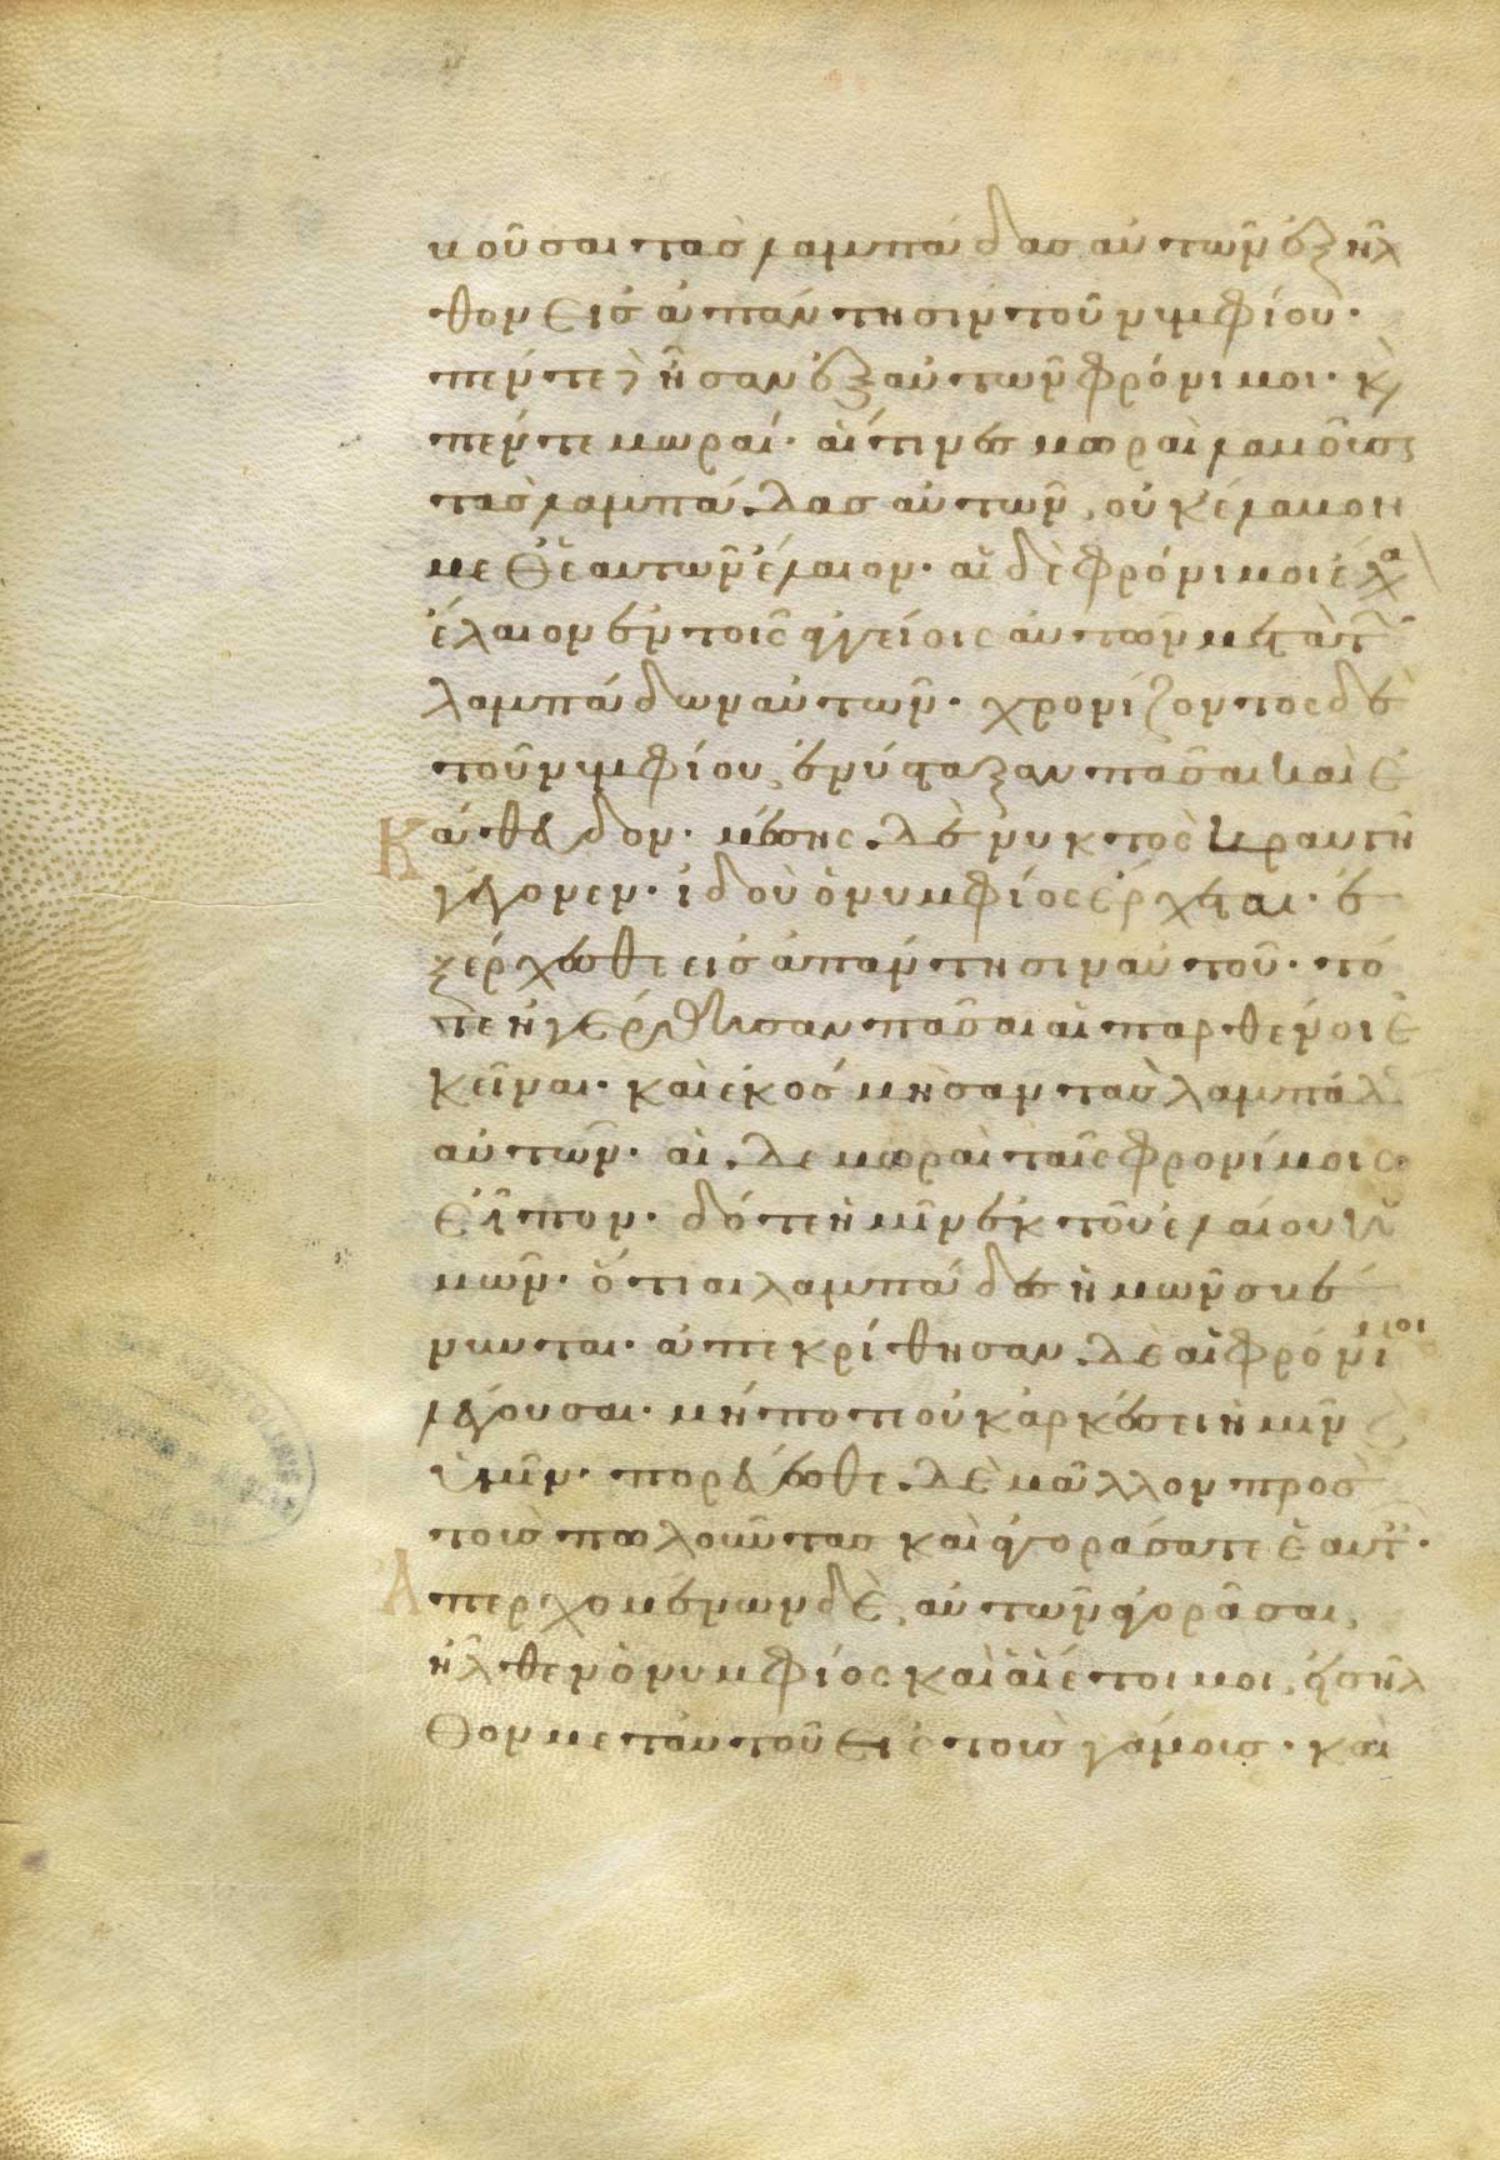 κοῦσαι τὰσ λαμπάδασ αὐτῶν ἐξῆλ
θον εἰσ ἀπάντησιν τοῦ νυμφίου·
πέντε ἦσαν ἐξ αὐτῶν φρόνιμοι· κ
πέντε μωραί· αἵτινεσ μωραὶ λαμοῦσ
τὰσ λαμπάδασ αὐτῶν, οὐκ έλαμον
μεθ' ἑαυτῶν ἔλαιον· αἱ δὲ φρόνιμοι ἐλα
ἔλαιον ἐν τοῖς ἀγγείοις αὐτῶν μετὰ τ
λαμπάδων αὐτῶν· χρονίζοντος δὲ
τοῦ νυμφίου, ἐνύσταξαν πᾶσαι καὶ ἐ
κάθευδον· μέσης δὲ νυκτὸς κραυγὴ
γέγονεν· ἰδοὺ ὁ νυμφίος ἔρχεται· ἐ
ξέρχεσθε εἰσ ἀπάντησιν αὐτοῦ· τό
τε ἠγέρθησαν πᾶσαι αἱ παρθένοι ἐ
κεῖναι· καὶ ἐκόσμησαν τὰσ λαμπάδ
αὐτῶν· αἱ δὲ μωραὶ ταῖς φρονίμοις
εἶπον· δότε ἡμῖν ἐκ τοῦ ἐλαίου ὑ
μῶν· ὅτι αι λαμπάδεσ ἡμῶν σβέ
νυνται· ἀπεκρίθησαν δὲ αἱ φρόνιμοι
λέγουσαι· μήποτε οὐκ ἀρκέσει ἡμῖν
ὑμῖν· πορεύεσθε δὲ μᾶλλον πρὸσ
τοὺσ πωλοῦντασ καὶ ἀγοράσατε ἑαυτ·
Απερχομένων δὲ, αὐτῶν ἀγορᾶσαι,
ἦλθεν ὁ νυμφίος καὶ αἱ έτοιμοι, εἰσῆλ
θον μετ' αυτοῦ εἰς τοὺσ γάμουσ· καὶ